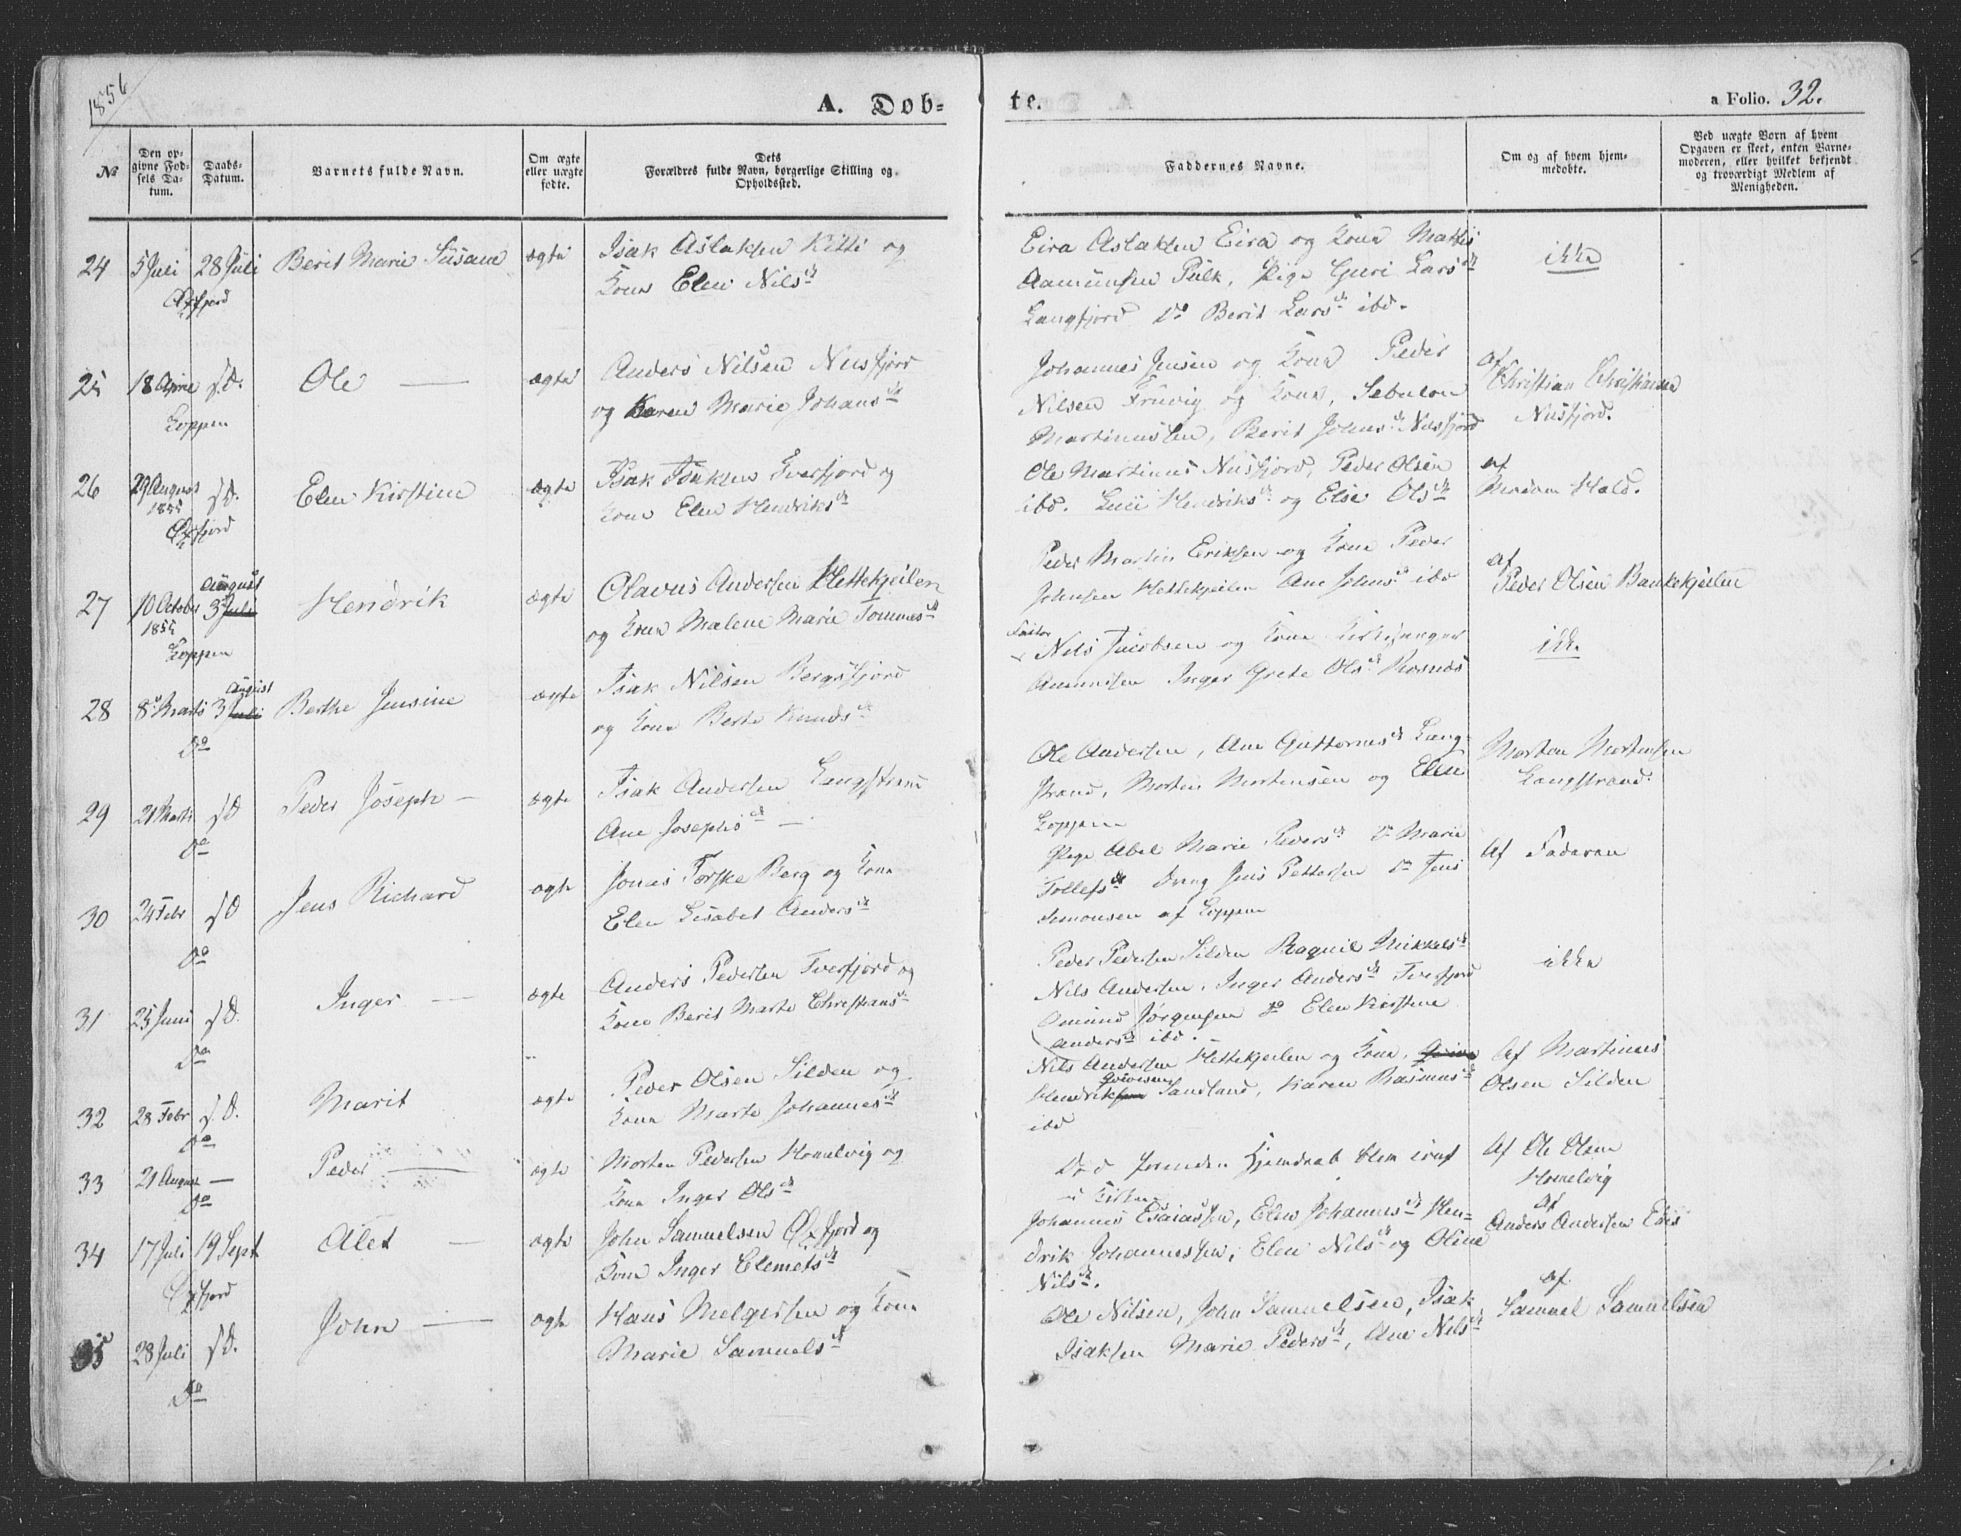 1856
A. Døb-
te.
a Folio. 32.
No
Den op-
givne Fød-
sels Da-
tum.
Daabs-
Datum.
Barnets fulde Navn.
Om ægte
eller uægte
fødte.
Dets
Forældres fulde Navn, borgerlige Stilling og
Opholdssted.
Faddernes Navne.
Om og af hvem hjem-
medøbte.
Ved uægte Børn af hvem
Opgaven er skeet, enten Barne-
moderen, eller hvilket bekjendt
og troværdigt Medlem af
Menigheden.
24 5 Juli 28 Juli Berit Marie Susane ægte Isak Aslaksen Kitti og
Kone Elen Nilsd.
Øxfjord
Eira Aslaksen Eira og Kone Mathis
Aamundsen Pulk, Pige Guri Larsd.
Langfjord Do Berit Larsd. ibd.
ikke
25 18 s.D. Ole — ægte Anders Nilsen Nusfjord
og Karen Marie Johansd.
Loppen
Johannes Jensen og Kone Peder
Nilsen Fruvig og Kone, Sebulon
Martinussen, Berit Johnsd. Nusfjord
af
Christian Christiansen
Nusfjord.
26 29 August 1855 s.D. Elen Kirstine ægte Isak Isaksen Tverfjord og
Kone Elen Hendriksd.
Øxfjord
Ole Martinus Nusfjord, Peder Olsen
ibd. Hendriksd. og Else Olsd.
af
Madam Hald.
27 10 October 1855 3 Juli August Hendrik ægte Olavus Andersen Hettekjeilen
og Kone Malene Marie Tommesd.
Loppen
Peder Martin Eriksen og Kone Peder
Johnsen Hettekjeilen Ane Johnsd. ibd
af
Peder Olsen Bankekjeilen
28 8 Marts 3 Juli August Berthe Jensine ægte Isak Nilsen Bergsfjord
og Kone Berte Knudsd.
Do
Nils Jacobsen og Kone Kirkesanger
Amundsen Inger Grete Olsd.
ikke
29 21 Marts s.D Peder Joseph — ægte Isak Andersen Langstrand
Ane Josephsd. —
Do
Ole Andersen, Ane Guttormsd. Lang-
strand, Morten Mortensen og Elen
Loppen
Morten Mortensen
Langstrand.
30 24 Febr s.D Jens Richard ægte Jonas Torske Berg og Kone
Elen Lisabet Andersd.
Do
Pige Abel Marie Pedersd. Do Marie
Tollefsd. Dreng Jens Pettersen Do Jens
Simonsen af Loppen
Af Faderen
31 25 Juni s.D. Inger — ægte Anders Pedersen Tverfjord og
Kone Berit Marte Christiansd.
Do
Peder Pedersen Silden Ragnil Mikkelsd.
Nils Andersen, Inger Andersd. Tverfjord
Amund Jörgensen Do Elen Kirstine
Andersd. ibd.
ikke
32 28 Febr s.D. Marit ægte Peder Olsen Silden og
Kone Marte Johannesd.
Do
Nils Andersen Hettekjeilen og Kone,
Hendriksen Sandland, Karen Rasmusd.
ibd
Af Martinus
Olsen Silden
33 21 August — Peder — ægte Morten Pedersen Komelvig og
Kone Inger Olsd.
Do
Död forinden Hjemdaab blev
Af Ole Olsen
Komelvig
34 17 Juli 19 Sept Alet — ægte John Samuelsen Øxfjord og
Kone Inger Clemetsd.
Øxfjord
Johannes Esaiassen, Elen Johannesd. Hen-
drik Johannessen, Elen Nilsd. og Oline
Nilsd.
af
Anders Andersen
35 28 Juli s.D. John — ægte Hans Melgersen og Kone
Marie Samuelsd.
Do
Ole Nilsen, John Samuelsen, Isak
Isaksen Marie Pedersd., Ane Nilsd.
af
Samuel Samuelsen